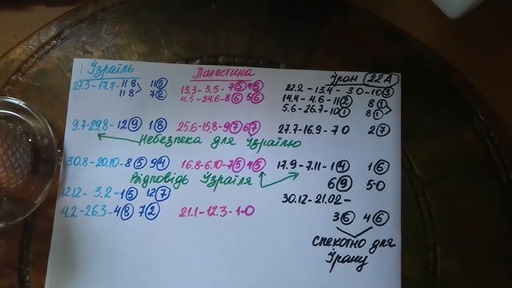 Ізраїль
27.3-17.4-11 8 11 5
11 8 7 2
9.7-29.8-12 9 1 8
Небезпека для Ізраїлю
30.8-20.10-8 5 9 4
Відповідь Ізраїля
12.12- 3.2-1 5 12 7
4.2-26.3-4 3 7 2
Палестина
13.3-3.5-7 5
4.5-24.6-8 6 5 6
25.6-15.8-9 7 6 7
16.8-6.10-7 5 4 5
21.1-12.3-1-0
Іран (22А)
22.2-13.4-30-10 3
14.4-4.6-11 2 8 1
5.6-26.7-10 1 8 1
27.7-16.9-70 2 7
17.9-7.11-1 4 1 6
6 9 5-0
30.12-21.02-
3 6 4 6
спекотно для
Ірану